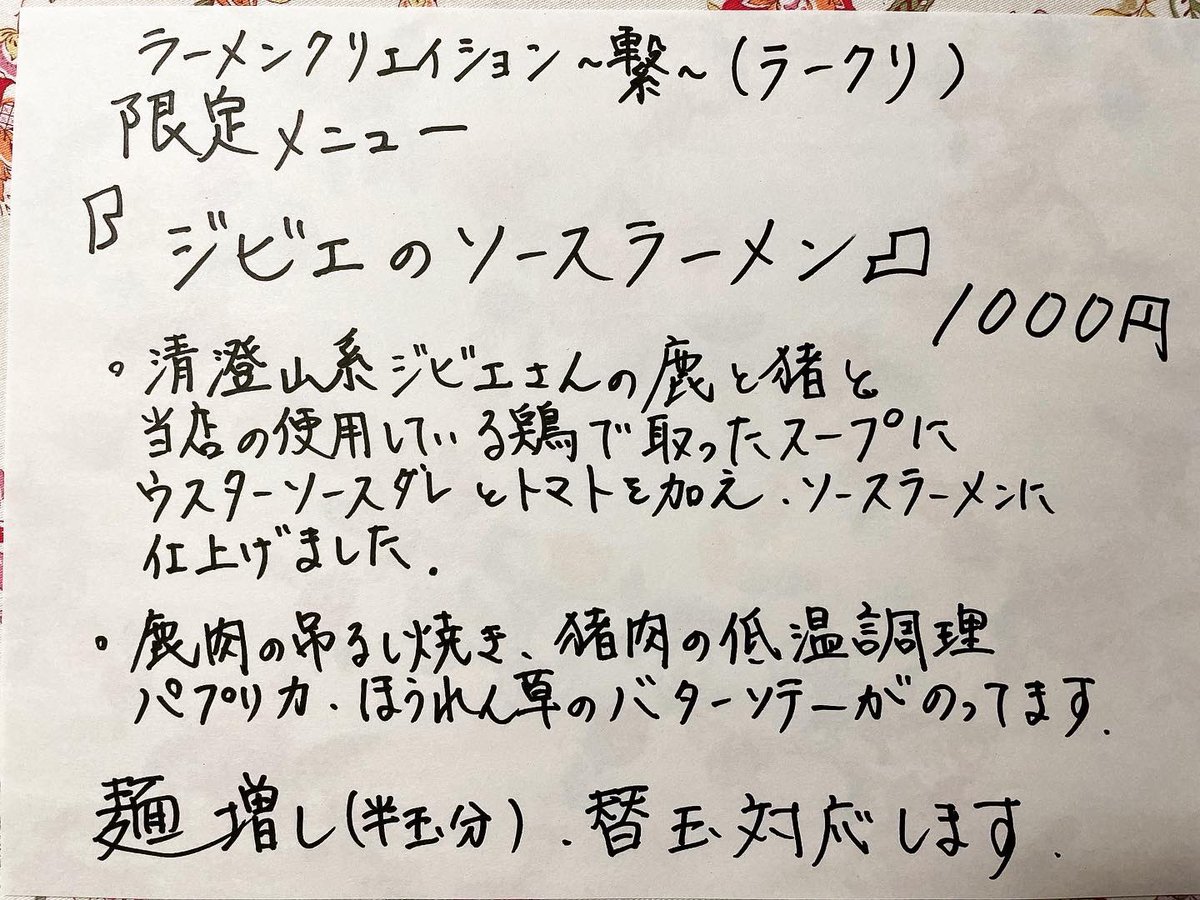 ラーメンクリエイション~繋~(ラークリ)
限定メニュー
『ジビエのソースラーメン』
1000円
。清澄山系ジビエさんの鹿と猪と
当店の使用している鶏で取ったスープに
ウスターソースダレとトマトを加え、ソースラーメンに
仕上げました。
。鹿肉の吊るし焼き、猪肉の低温調理
パプリカ、ほうれん草のバターソテーがのってます。
麺増し(半玉分)、替玉対応します。